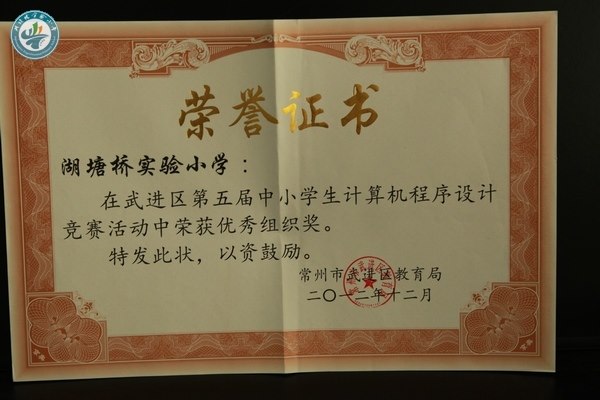 荣誉证书
湖塘桥实验小学：
在武进区第五届中小学生计算机程序设计
竞赛活动中荣获优秀组织奖。
特发此状，以资鼓励。
常州市武进区教育局
二〇一二年十二月